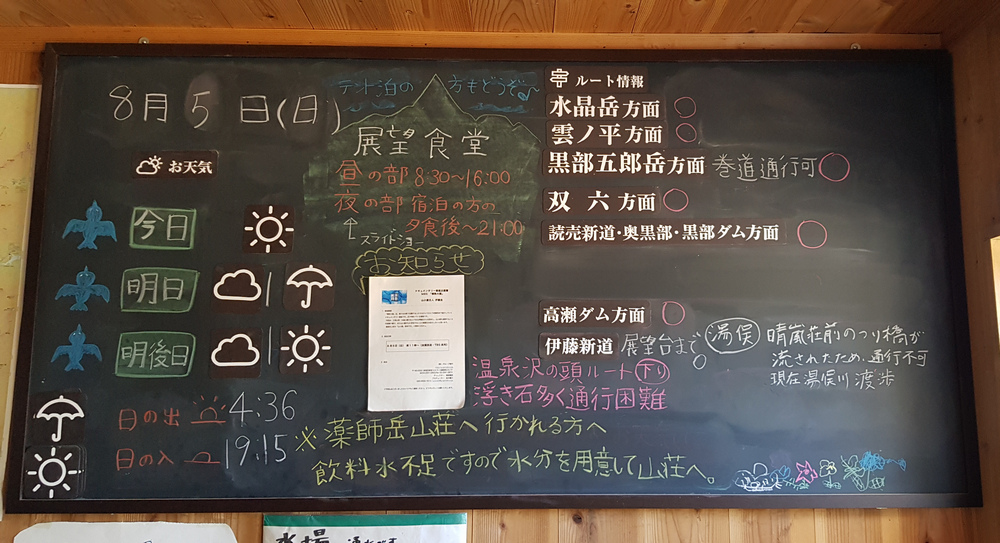 8月5日(日)
お天気
今日
明日
明後日
日の出 4:36
日の入 19:15
テント泊の方もどうぞ
展望食堂
昼の部 8:30~16:00
夜の部 宿泊の方の
夕食後~21:00
↑スライドショー
お知らせ
ルート情報
水晶岳方面 ○
雲ノ平方面 ○
黒部五郎岳方面 巻道通行可 ○
双六方面 ○
読売新道・奥黒部・黒部ダム方面 ○
高瀬ダム方面 ○
伊藤新道 展望台まで○
湯俣
晴嵐荘前のつり橋が
流されたため、通行不可
現在湯俣川渡歩
温泉沢の頭ルート 下り
浮き石多く通行困難
※薬師岳山荘へ行かれる方へ
飲料水不足ですので水分を用意して山荘へ。
水場